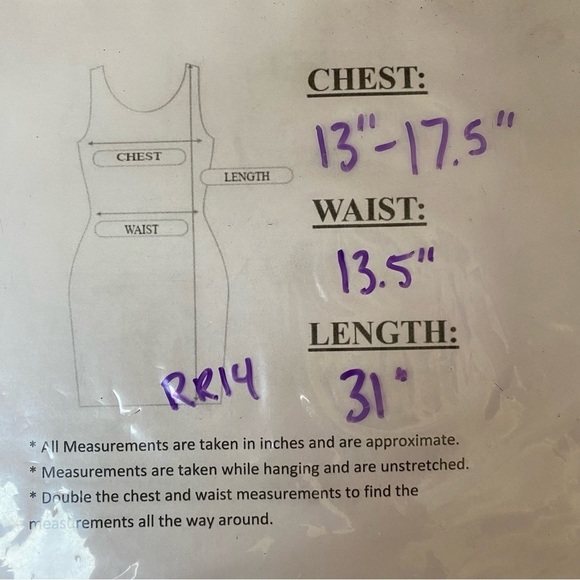 CHEST:
13"-17.5"
CHEST
LENGTH
WAIST:
WAIST
13.5"
LENGTH:
RR14
31"
* All Measurements are taken in inches and are approximate.
* Measurements are taken while hanging and are unstretched.
* Double the chest and waist measurements to find the
measurements all the way around.